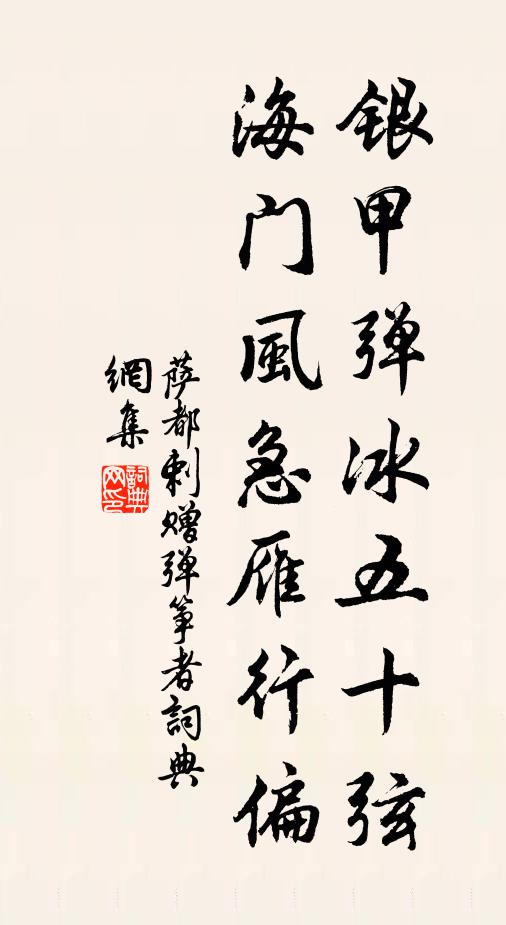 银甲弹冰五十弦
海门風急雁行偏
萨都剌赠弹筝者詞典
網集
詞典
网印